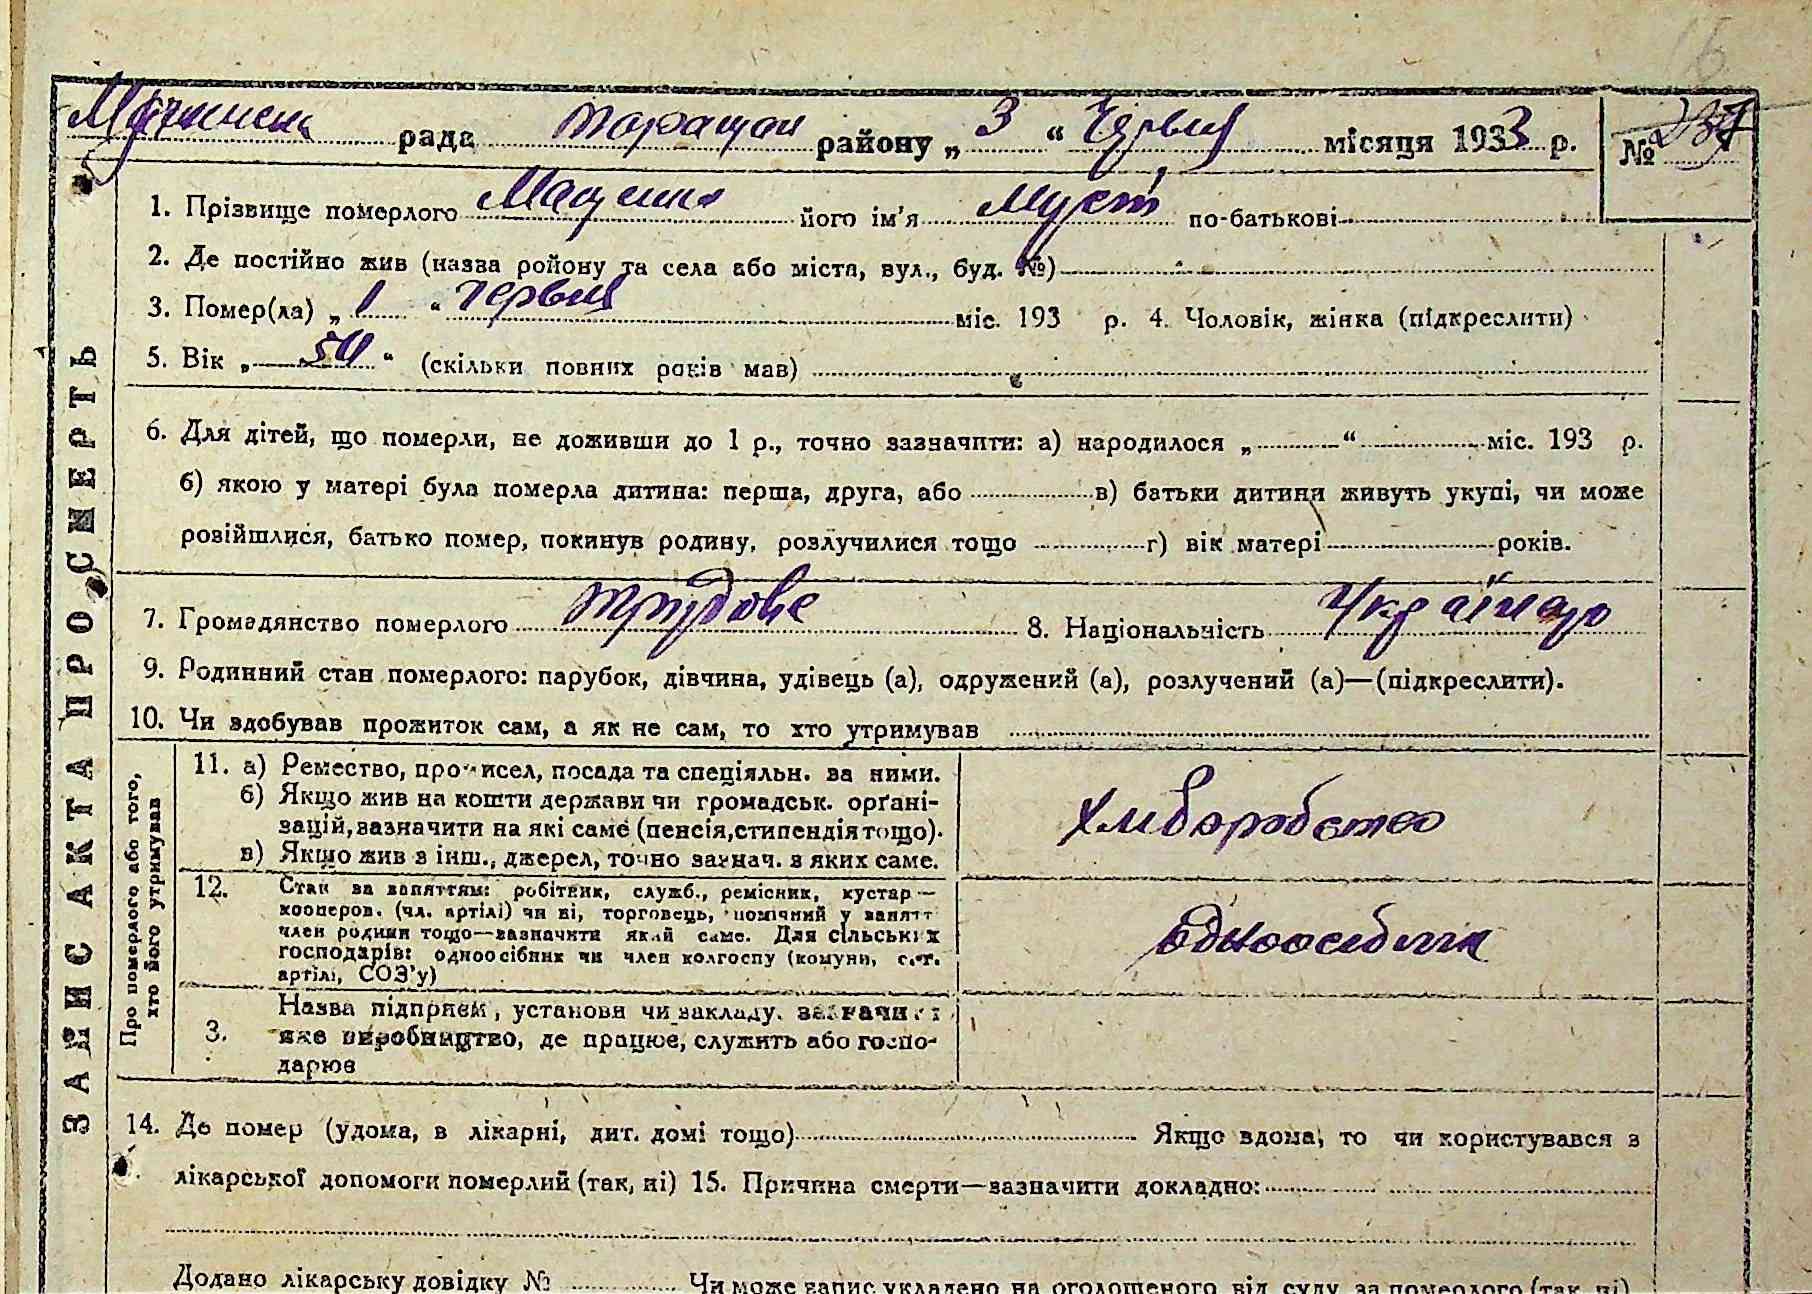 рада Таращан району „ 3 “ Червня місяця 1933 р. № 237
1. Прізвище померлого його ім'я по-батькові
2. Де постійно жив (назва ройону та села або міста, вул., буд. №)
3. Помер(ла) „ 1 “ червня міс. 193 р. 4. Чоловік, жінка (підкреслити)
5. Вік „ 50 “ (скільки повних років мав)
6. Для дітей, що померли, не доживши до 1 р., точно зазначити: а) народилося „ “ міс. 193 р.
б) якою у матері була померла дитина: перша, друга, або в) батьки дитини живуть укупі, чи може
розійшлися, батько помер, покинув родину, розлучилися тощо г) вік матері років.
7. Громадянство померлого трудове 8. Національність
9. Родинний стан померлого: парубок, дівчина, удівець (а), одружений (а), розлучений (а)—(підкреслити).
10. Чи здобував прожиток сам, а як не сам, то хто утримував
ЗАПИС АКТА ПРО СМЕРТЬ
Про померлого або того,
хто його утримував
11. а) Ремество, промисел, посада та спеціяльн. за ними.
б) Якщо жив на кошти держави чи громадськ. орґані-
зацій, зазначити на які саме (пенсія, стипендія тощо).
в) Якщо жив з інш., джерел, точно зазнач. з яких саме.
12. Стан за заняттям: робітник, служб., ремісник, кустар—
кооперов. (чл. артілі) чи ні, торговець, помічний у занятт
член родини тощо—зазначити який саме. Для сільських
господарів: одноосібник чи член колгоспу (комуни, с.-г.
артілі, СОЗ'у)
Назва підприєм, установи чи закладу. зазначити
3. яке виробництво, де працює, служить або госпо-
дарює
14. Де помер (удома, в лікарні, дит. домі тощо) Якщо вдома, то чи користувався з
лікарської допомоги померлий (так, ні) 15. Причина смерти—зазначити докладно:
Додано лікарську довідку № Чи може запис укладено на оголошеного від суду за померлого (так, ні)